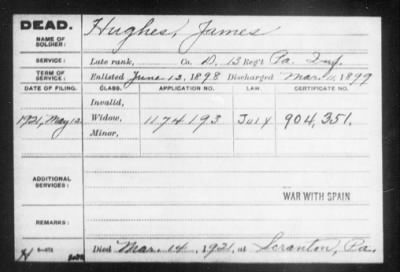 DEAD.
NAME OF SOLDIER: Hughes, James
SERVICE: Late rank, Co. D, 13 Reg't Pa. Inf.
TERM OF SERVICE: Enlisted June 13, 1898 Discharged Mar. 11, 1899
DATE OF FILING. CLASS. APPLICATION NO. LAW. CERTIFICATE NO.
Invalid,
1921, May 12 Widow, 1174193 904,351.
Minor,
ADDITIONAL SERVICES:
WAR WITH SPAIN
REMARKS:
Died Mar. 14, 1921, at Scranton, Pa.